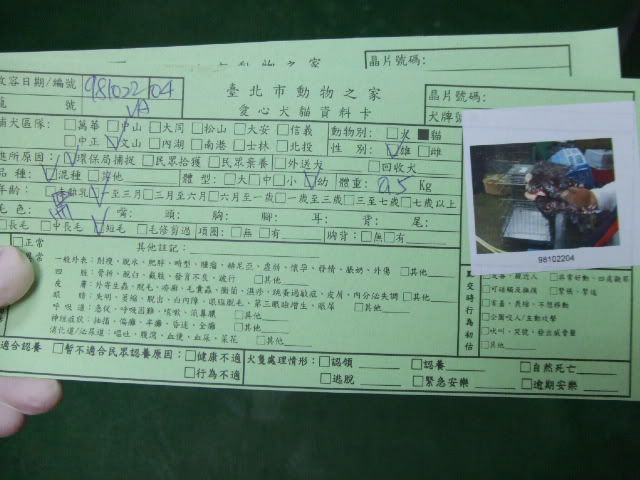 動物之家
晶片號碼:
收容日期/編號 981022 04
臺北市動物之家
晶片號碼:
號 VA
愛心犬貓資料卡
犬牌號
捕犬區隊: □萬華 □中山 □大同 □松山 □大安 □信義 動物別: □犬 ■貓
□中正 ☑文山 □內湖 □南港 □士林 □北投 性別: ☑雄 □雌
進所原因: ☑環保局捕捉 □民眾拾獲 □民眾棄養 □外送犬 □回收犬
品種: ☑混種 □其他 體型: □大 □中 □小 ☑幼 體重: 0.5 Kg
年齡: □未離乳 ☑一至三月 □三月至六月 □六月至一歲 □一歲至三歲 □三至七歲 □七歲以上
毛色: 嘴: 頭: 胸: 腳: 耳: 背: 尾:
□長毛 □中長毛 ☑短毛 □毛修剪過 項圈: □無 □有 胸背: □無 □有
□正常 其他註記:
異常 一般外表: 削瘦、脫水、肥胖、畸型、腫瘤、赫尼亞、虛弱、懷孕、發情、脹奶、外傷 □其他
四肢: 骨折、脫臼、截肢、發育不良、跛行 □其他
皮膚: 外寄生蟲、脫毛、疥癬、毛囊蟲、黴菌、濕疹、跳蚤過敏症、皮屑、內分泌失調 □其他
眼睛: 失明、萎縮、脫出、白內障、眼瞼脫毛、第三眼瞼增生、眼屎 □其他
呼吸道: 急促、呼吸困難、咳嗽、流鼻膿 □其他
神經症狀: 抽搐、偏癱、半癱、昏迷、全癱 □其他
消化道/泌尿道: 嘔吐、腹瀉、血便、血尿、菜花 □其他
98102204
立即行為初估
□友善、親近人 □異常好動、四處觀望
□可碰觸及撫摸 □緊張、緊迫
□害羞、畏縮、不想移動
□企圖咬人/主動攻擊
□吠叫、哭號、發出威脅聲
□其他
適合認養 □暫不適合民眾認養原因: □健康不適 犬隻處理情形: □認領 □認養 □自然死亡
□行為不適 □逃脫 □緊急安樂 □逾期安樂